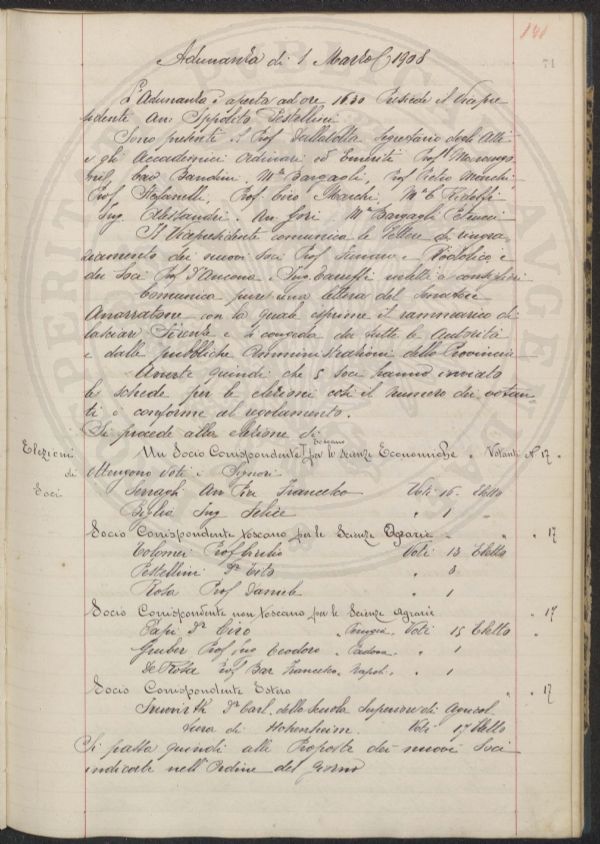 141
71
Adunanza di 1 Marzo 1908
L'Adunanza è aperta ad ore 16.30 Presiede il Vicepre
sidente Avv Ippolito Pestellini
Sono presenti il Prof Dallavolta Segretario degli Atti
e gli Accademici Ordinari ed Emeriti Prof
Cav Bandini, Mse Bargagli, Prof Pietro Marchi
Prof Stefanelli, Prof. Ciro Marchi, Mse C Ridolfi
Ing. Alessandri. Avv Gori Mse Bargagli Petrucci
Il Vicepresidente comunica le lettere di ringra
ziamento dei nuovi Soci Prof e Rodolico e
dei Soci Prof D'Ancona e Ing. eletti a consiglieri
Comunica pure una lettera del Senatore
Annaratone con la quale esprime il rammarico di
lasciare Firenze e si congeda da tutte le Autorità
e dalle pubbliche Amministrazioni della Provincia
Avverte quindi che 5 soci hanno inviato
le schede per le elezioni così il numero dei votan
ti è conforme al regolamento.
Si procede alla elezione di
Elezioni di Soci
Un Socio Corrispondente toscano per le scienze Economiche " Votanti N° 17 "
Ottengono voti i Signori
Serragli Avv Pier Francesco Voti 16 - Eletto
Biglia Ing Felice " 1 "
Socio Corrispondente toscano per le Scienze Agrarie " " 17
Tolomei Prof Giulio Voti 13 Eletto
Pestellini Dr Tito " 3
Rosa Prof Daniele " 1
Socio Corrispondente non toscano per le Scienze Agrarie " 17
Papi Dr Ciro Perugia. Voti 15 Eletto
Gruber Prof Ing Teodoro " Padova " 1
De Rosa Prof Bar Francesco " Napoli " 1
Socio Corrispondente Estero " " 17
Dr Carl. della Scuola Superiore di Agricol
tura di Hohenheim. Voti 17 Eletto
Si passa quindi alle Proposte dei nuovi Soci
indicate nell'Ordine del Giorno